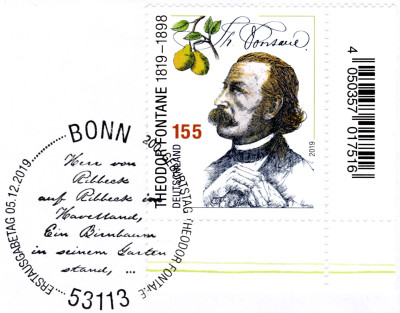 THEODOR FONTANE 1819–1898
DEUTSCHLAND
155
Th. Fontane.
2019
4 050357 017516
BONN
200. GEBURTSTAG THEODOR FONTANE
ERSTAUSGABETAG 05.12.2019
Herr von
Ribbeck
auf Ribbeck im
Havelland,
Ein Birnbaum
in seinem Garten
stand, ...
53113